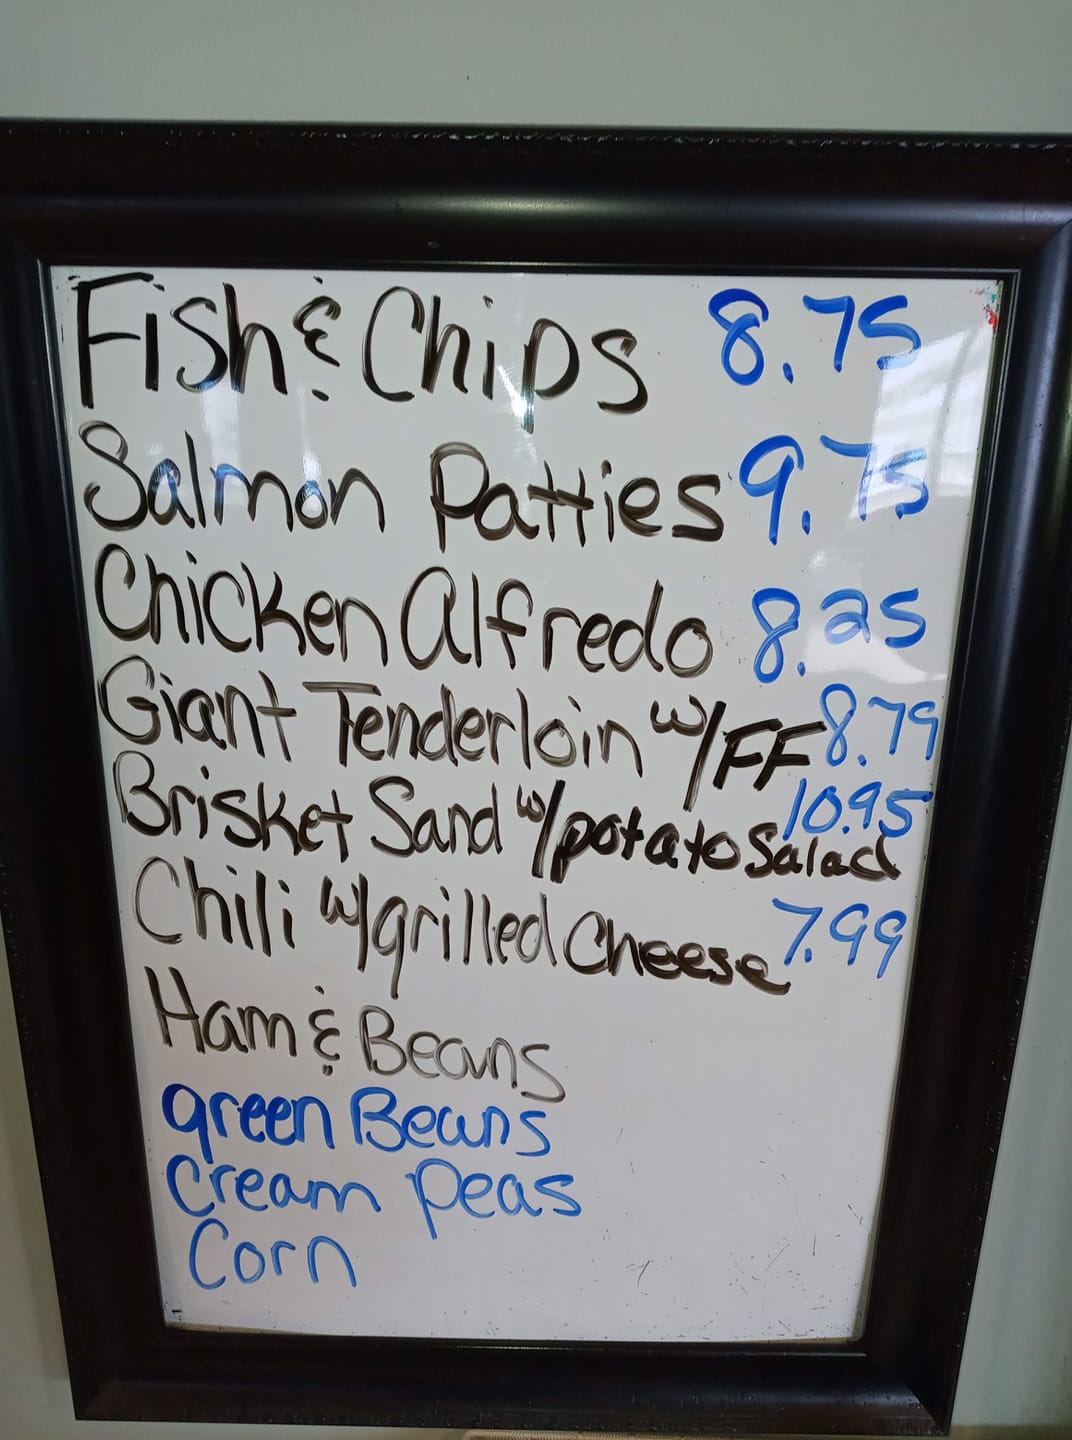 Fish & Chips 8.75
Salmon Patties 9.75
Chicken Alfredo 8.25
Giant Tenderloin w/FF 8.79
Brisket Sand w/potato Salad 10.95
Chili w/grilled Cheese 7.99
Ham & Beans
green Beans
Cream Peas
Corn